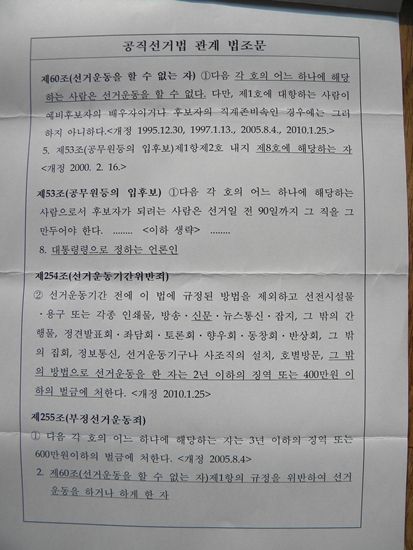 공직선거법 관계 법조문
제60조(선거운동을 할 수 없는 자) ①다음 각 호의 어느 하나에 해당
하는 사람은 선거운동을 할 수 없다. 다만, 제1호에 대항하는 사람이
예비후보자의 배우자이거나 후보자의 직계존비속인 경우에는 그러
하지 아니하다.<개정 1995.12.30, 1997.1.13., 2005.8.4., 2010.1.25.>
5. 제53조(공무원등의 입후보)제1항제2호 내지 제8호에 해당하는 자
<개정 2000. 2. 16.>
제53조(공무원등의 입후보) ①다음 각 호의 어느 하나에 해당하는
사람으로서 후보자가 되려는 사람은 선거일 전 90일까지 그 직을 그
만두어야 한다. ........ <이하 생략> ........
8. 대통령령으로 정하는 언론인
제254조(선거운동기간위반죄)
② 선거운동기간 전에 이 법에 규정된 방법을 제외하고 선전시설물
·용구 또는 각종 인쇄물, 방송·신문·뉴스통신·잡지, 그 밖의 간
행물, 정견발표회·좌담회·토론회·향우회·동창회·반상회, 그 밖
의 집회, 정보통신, 선거운동기구나 사조직의 설치, 호별방문, 그 밖
의 방법으로 선거운동을 한 자는 2년 이하의 징역 또는 400만원 이
하의 벌금에 처한다. <개정 2010.1.25>
제255조(부정선거운동죄)
① 다음 각 호의 어느 하나에 해당하는 자는 3년 이하의 징역 또는
600만원이하의 벌금에 처한다. <개정 2005.8.4>
2. 제60조(선거운동을 할 수 없는 자)제1항의 규정을 위반하여 선거
운동을 하거나 하게 한 자